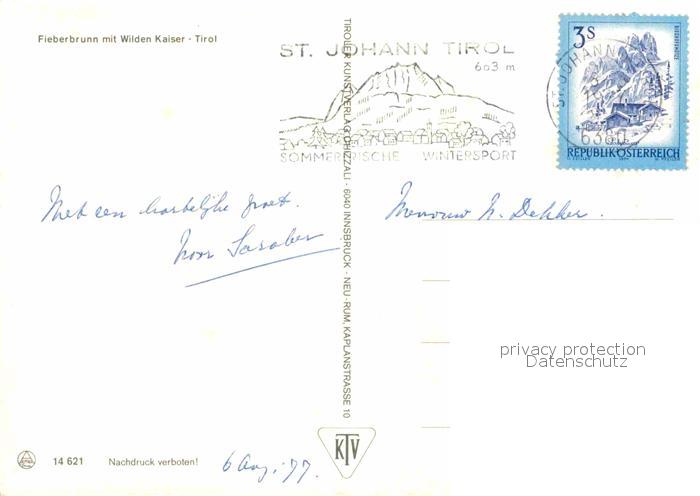 Fieberbrunn mit Wilden Kaiser - Tirol
ST. JOHANN TIROL
603 m
SOMMERFRISCHE WINTERSPORT
3s
ST. JOHANN
6380
REPUBLIK ÖSTERREICH
Met een hartelijke groet.
Mevrouw N. Dekker.
TIROLER KUNSTVERLAG CHIZZALI · 6040 INNSBRUCK - NEU-RUM, KAPLANSTRASSE 10
privacy protection
Datenschutz
KTV
14 621 Nachdruck verboten!
6 Aug. '77.